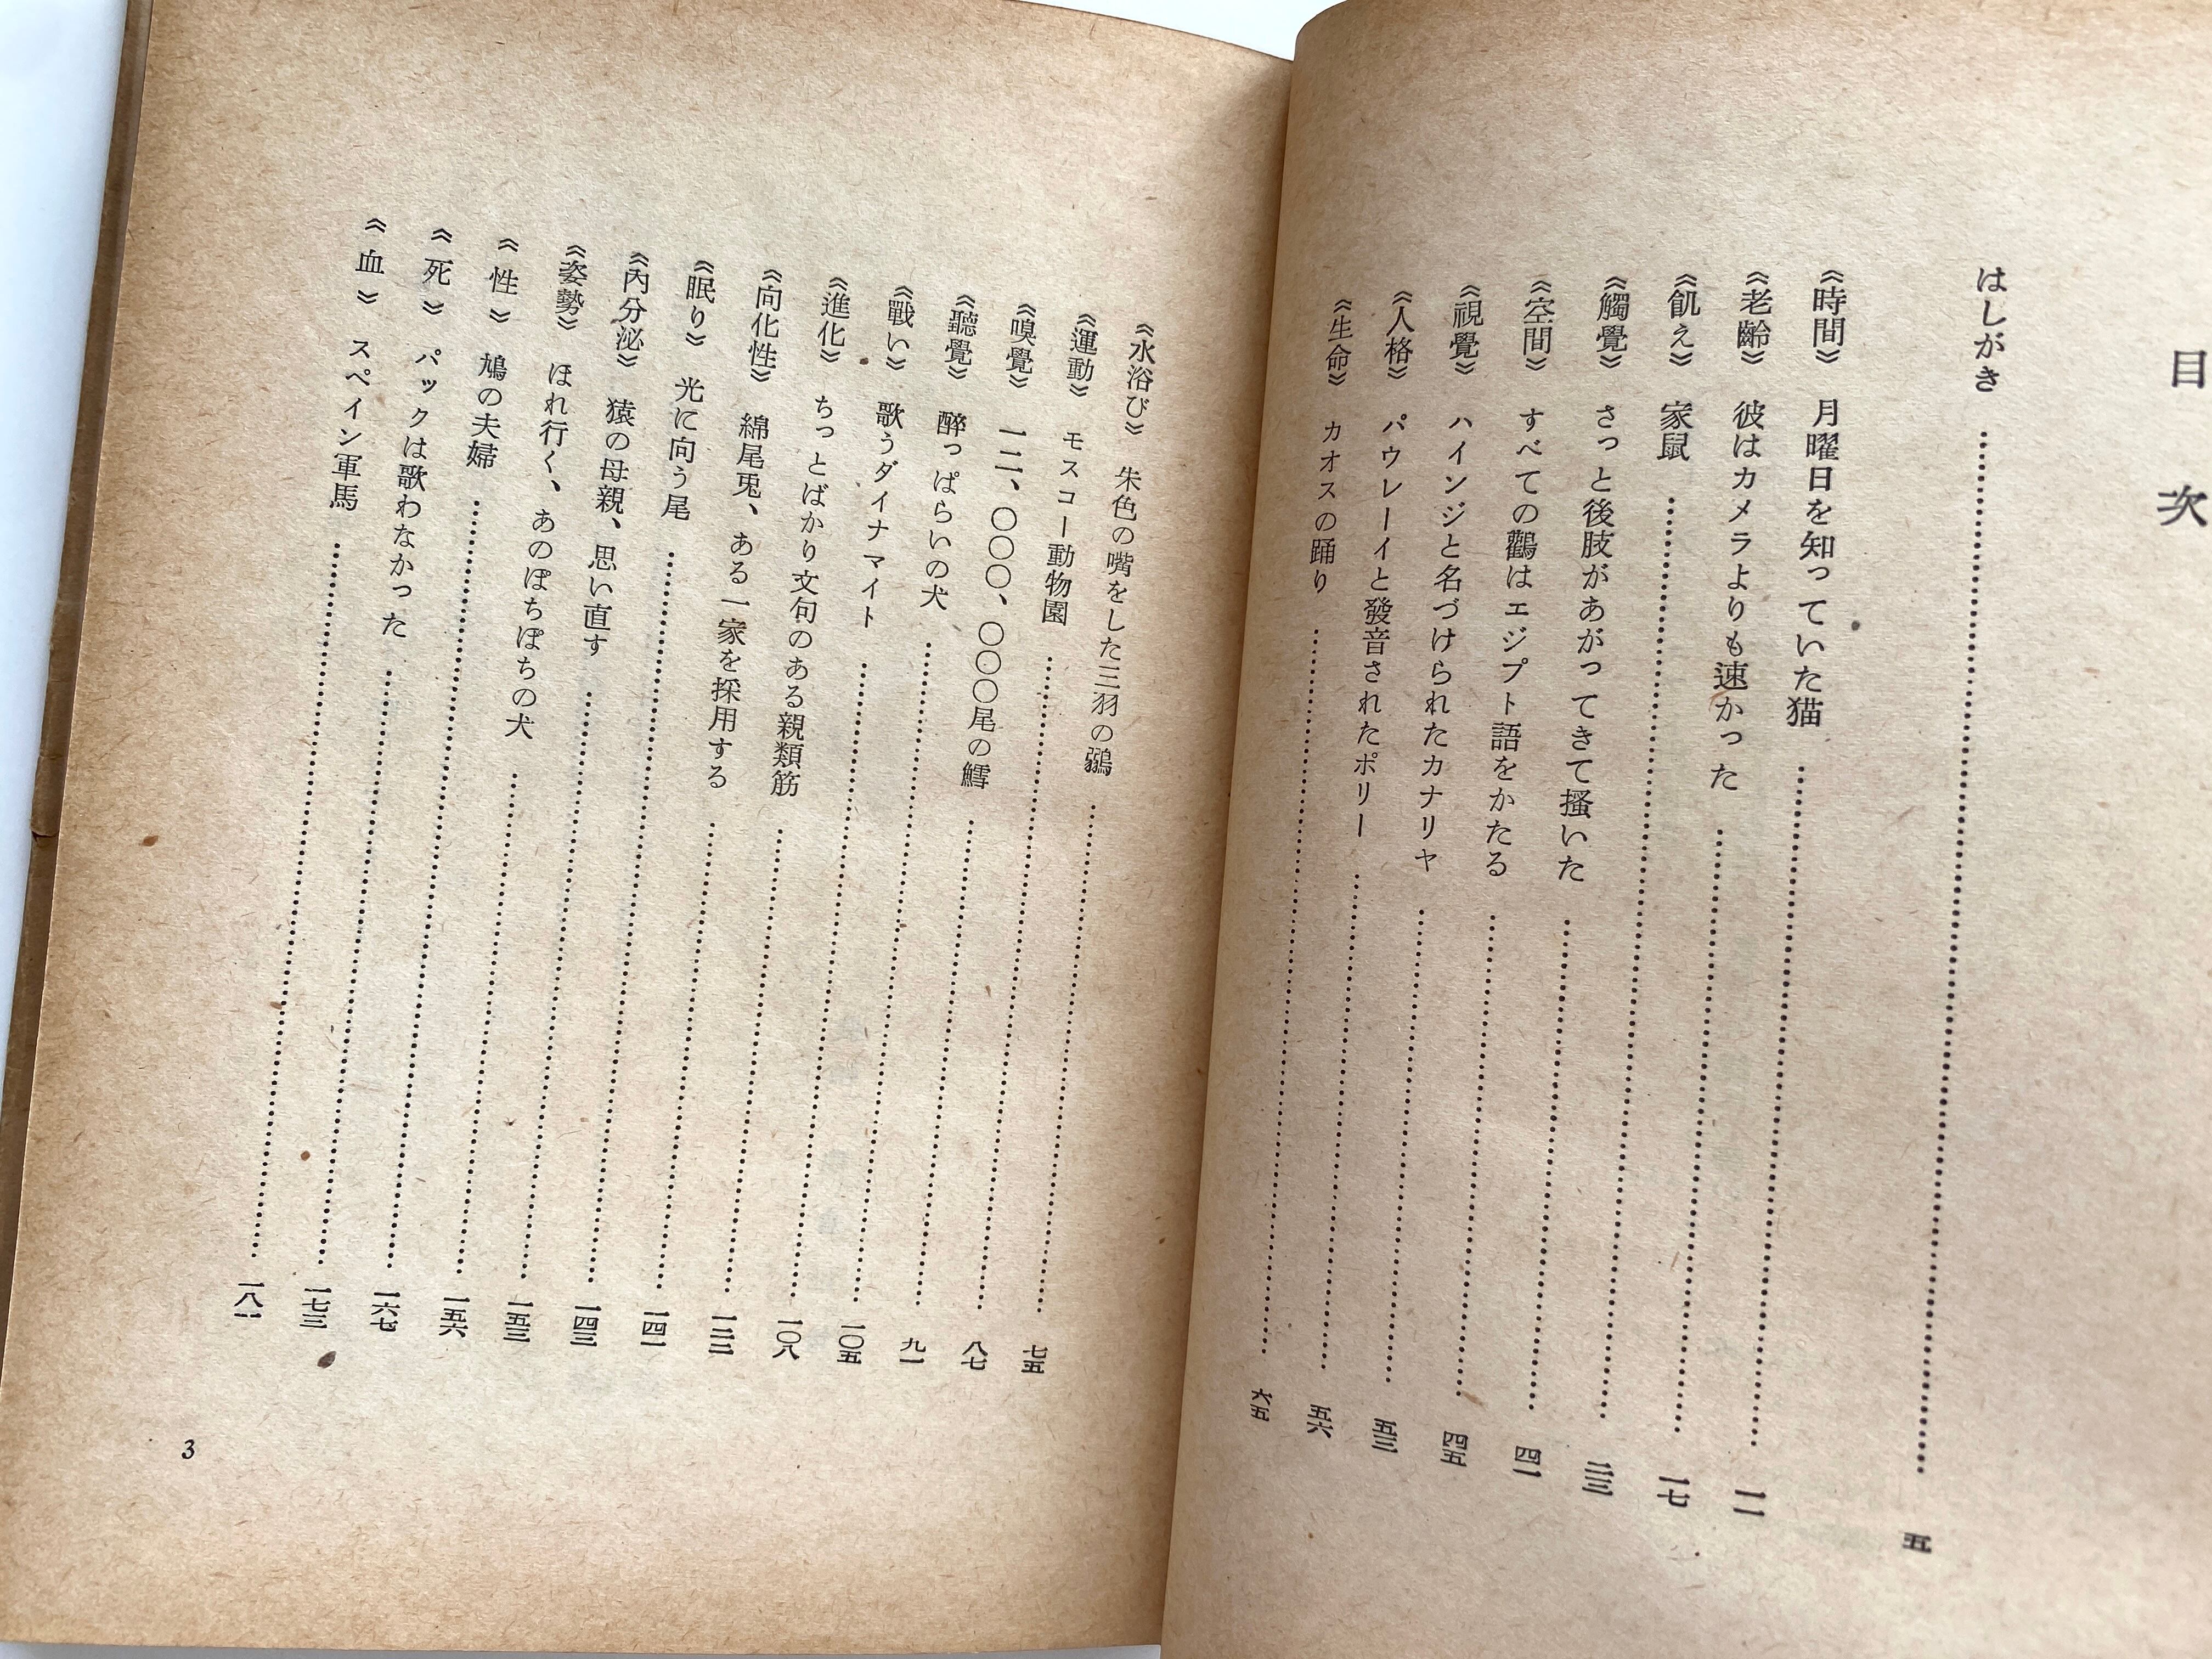 目次
はしがき……………五
《時間》 月曜日を知っていた猫……………一一
《老齡》 彼はカメラよりも速かった……………一七
《飢え》 家鼠……………二三
《觸覺》 さっと後肢があがってきて搔いた……………四一
《空間》 すべての鸛はエジプト語をかたる……………四五
《視覺》 ハインジと名づけられたカナリヤ……………五三
《人格》 パウレーイと發音されたポリー……………五六
《生命》 カオスの踊り……………六五
《水浴び》 朱色の嘴をした三羽の鶸……………七五
《運動》 モスコー動物園……………八七
《嗅覺》 一二、〇〇〇、〇〇〇尾の鱈……………九一
《聽覺》 醉っぱらいの犬……………一〇五
《戰い》 歌うダイナマイト……………一〇八
《進化》 ちっとばかり文句のある親類筋……………一二二
《向化性》 綿尾兎、ある一家を採用する……………一四一
《眠り》 光に向う尾……………一四三
《內分泌》 猿の母親、思い直す……………一五三
《姿勢》 ほれ行く、あのぽちぽちの犬……………一五六
《性》 鳩の夫婦……………一六七
《死》 パックは歌わなかった……………一七三
《血》 スペイン軍馬……………一八一
3